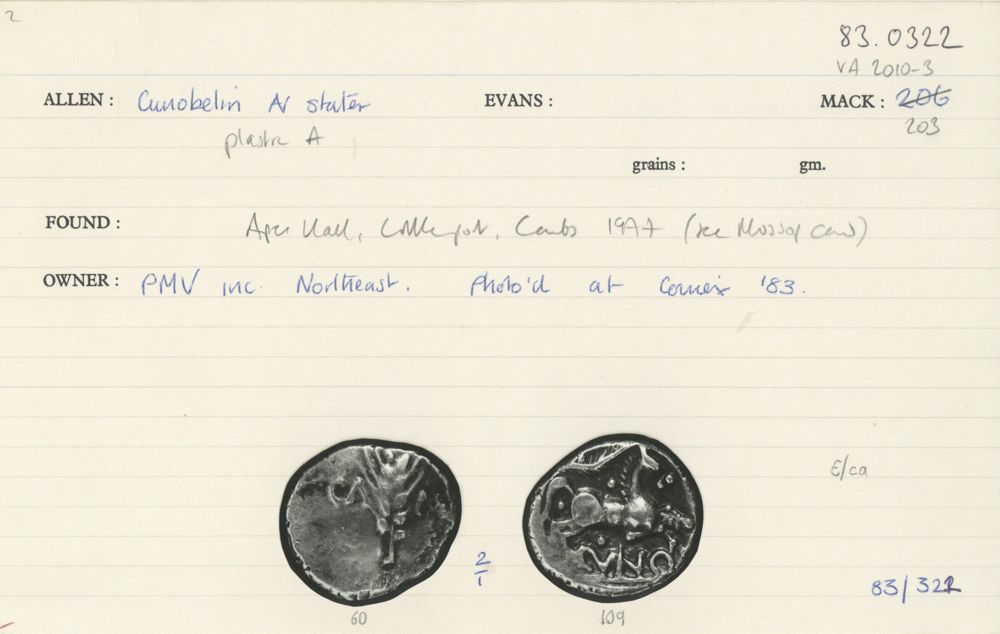 2
83.0322
VA 2010-3
ALLEN : Cunobelin AV stater EVANS : MACK : 206
plastic A 203
grains : gm.
FOUND : Hall, Cambs 19 (see Mossop card)
OWNER : PMV inc. Northeast. Photo'd at Coinex '83.
E/ca
2/1
83/322
60 109